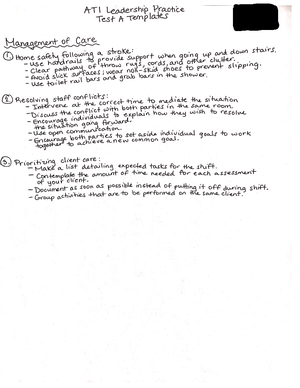 ATI Leadership Practice
Test A Templates
Management of Care
① Home safety following a stroke:
- Use handrails to provide support when going up and down stairs.
- Clear pathway of throw rugs, cords, and other clutter.
- Avoid slick surfaces; wear non-skid shoes to prevent slipping.
- Use toilet rail bars and grab bars in the shower.
② Resolving staff conflicts:
- Intervene at the correct time to mediate the situation
- Discuss the conflict with both parties in the same room.
- Encourage individuals to explain how they wish to resolve
the situation going forward.
- Use open communication.
- Encourage both parties to set aside individual goals to work
together to achieve a new common goal.
③ Prioritizing client care:
- Make a list detailing expected tasks for the shift.
- Contemplate the amount of time needed for each assessment
of your client.
- Document as soon as possible instead of putting it off during shift.
- Group activities that are to be performed on the same client.